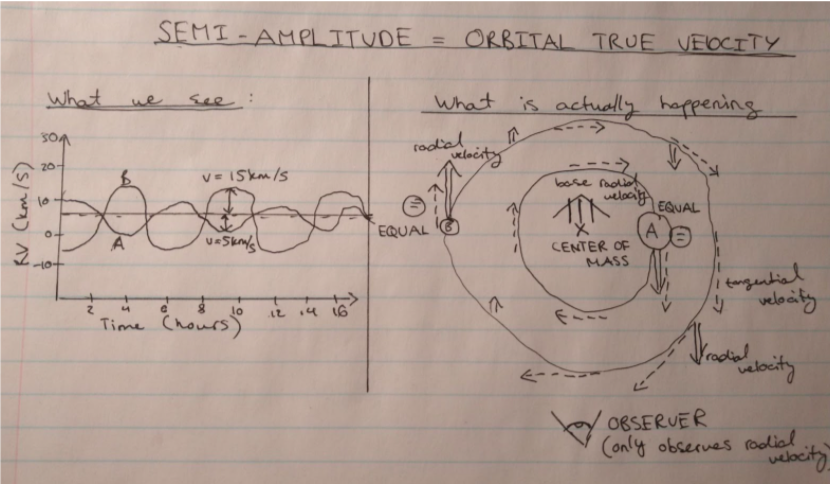 SEMI-AMPLITUDE = ORBITAL TRUE VELOCITY
What we see:
30
20
10
0
-10
RV (km/s)
B
A
v = 15km/s
v=5km/s
2 4 6 8 10 12 14 16
Time (hours)
What is actually happening
radial
velocity
=
EQUAL
B
base radial
velocity
X
CENTER OF
MASS
EQUAL
A =
tangential
velocity
radial
velocity
OBSERVER
(only observes radial
velocity)